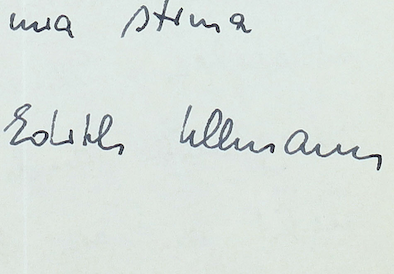 mia stima
Edith Ullmann